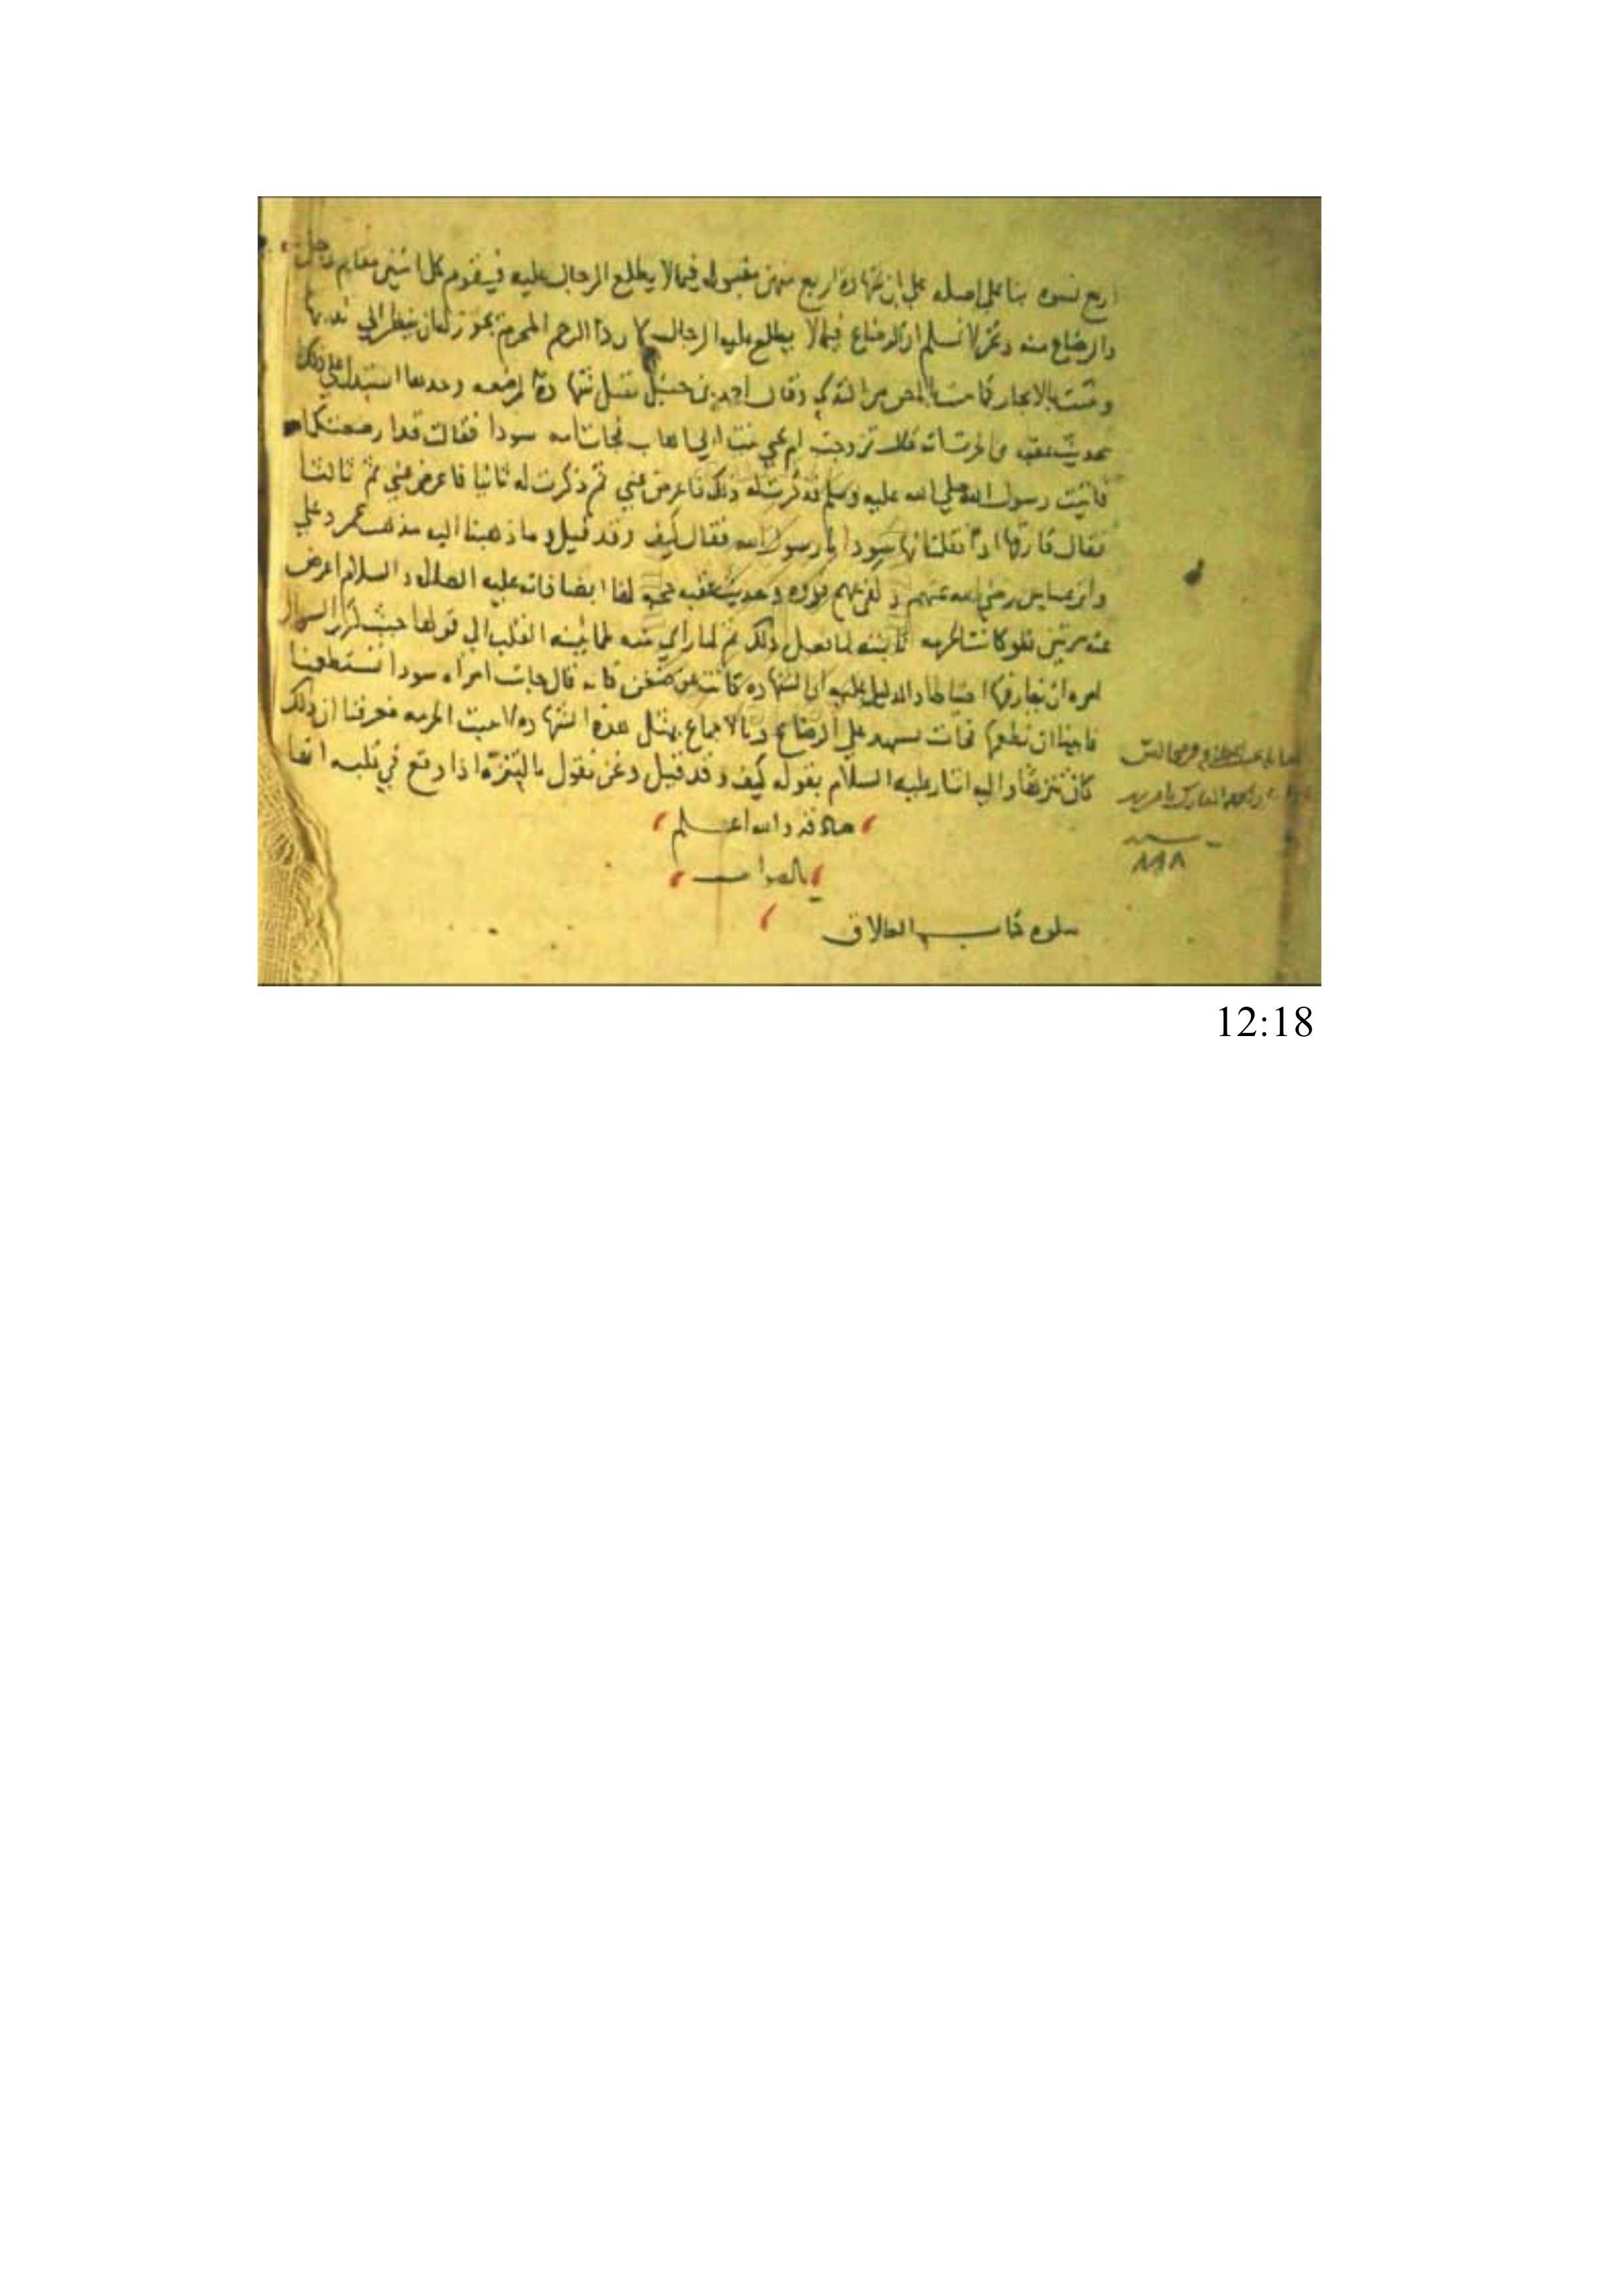 اربع نسوه بنا على اصله علي ان شهادة اربع منهن مقبوله فيما لا يطلع الرجال عليه فيقوم كل اثنين مقام رجل
والرضاع منه ونحن لا نسلم ان الرضاع فيما لا يطلع عليه الرجال لان ذا الرحم المحرم يجوز له ان ينظر الي ثديها
وقال احمد بن حنبل تقبل شهادة المرضعه وحدها استدل علي ذلك
بحديث عقبه بن الحرث انه قال تزوجت ام يحي بنت ابي اهاب فجات امه سودا فقالت قد ارضعتكما
فاتيت رسول الله صلي الله عليه وسلم فذكرت له ذلك فاعرض عني ثم ذكرت له ثانيا فاعرض عني ثم ثالثا
فقال فارقها اذا فقلت انها سودا يا رسول الله فقال كيف وقد قيل وما ذهبنا اليه مذهب عمر وعلي
وابن عباس رضي الله عنهم وحديث عقبه حجه لنا ايضا فانه عليه الصلاة والسلام اعرض
عنه مرتين فلو كانت الحرمه ثابته لما فعل ذلك ثم لما راي منه طمانينه القلب الي قولها حيث كرر السوال
امره ان يفارقها احتياطا والدليل عليه ان الشهاده كانت عن ضغن فانه قال جات امراه سودا تستطعمنا
فابينا ان نطعمها فجات تشهد علي الرضاع وبالاجماع بمثل هذه الشهاده لا تثبت الحرمه فعرفنا ان ذلك
كان تنزها واليه اشار عليه السلام بقوله كيف وقد قيل ونحن نقول بالتنزه اذا وقع في قلبه انها
صادقه والله اعلم
بالصواب
يتلوه كتاب الطلاق
12:18